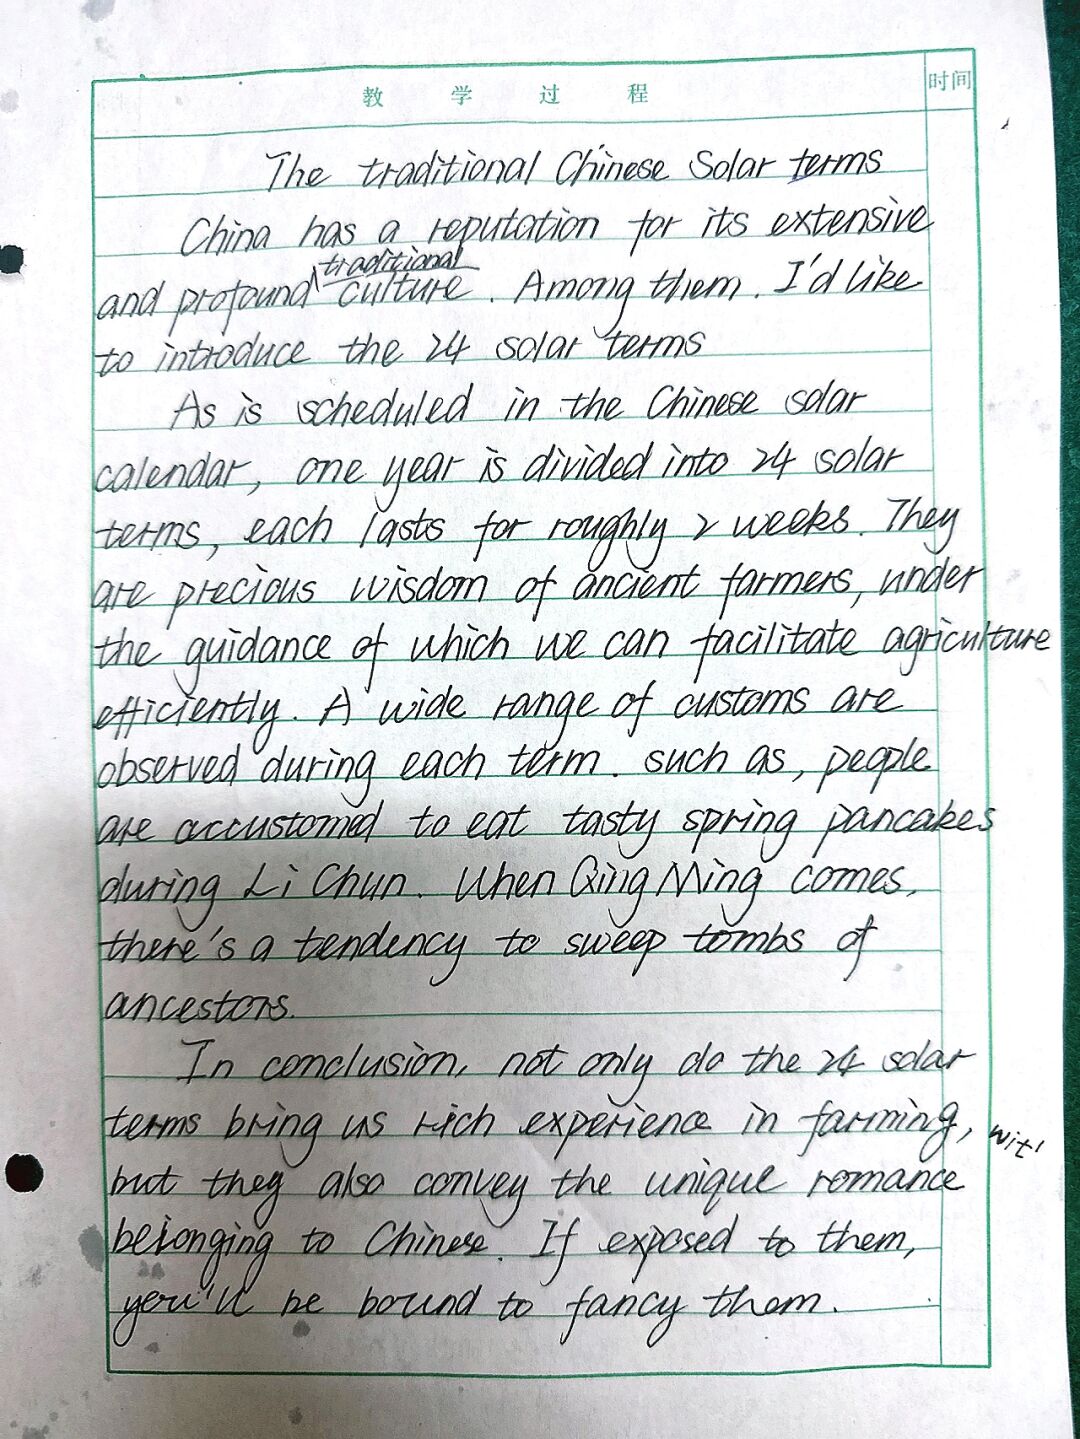 教 学 过 程
时间
The traditional Chinese Solar terms
China has a reputation for its extensive
traditional
and profound culture. Among them. I'd like
to introduce the 24 solar terms
As is scheduled in the Chinese solar
calendar, one year is divided into 24 solar
terms, each lasts for roughly 2 weeks. They
are precious wisdom of ancient farmers, under
the guidance of which we can facilitate agriculture
efficiently. A wide range of customs are
observed during each term. such as, people
are accustomed to eat tasty spring pancakes
during Li Chun. When Qing Ming comes,
there's a tendency to sweep tombs of
ancestors.
In conclusion, not only do the 24 solar
terms bring us rich experience in farming,
wit'
but they also convey the unique romance
belonging to Chinese. If exposed to them,
you'll be bound to fancy them.